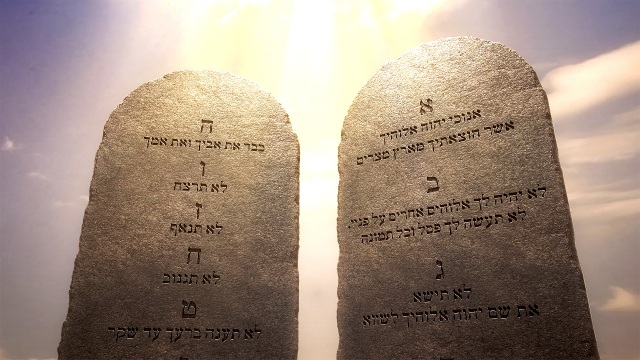 א
אנוכי יהוה אלוהיך
אשר הוצאתיך מארץ מצרים
ב
לא יהיה לך אלוהים אחרים על פניי.
לא תעשה לך פסל וכל תמונה
ג
לא תישא
את שם יהוה אלוהיך לשווא
ה
כבד את אביך ואת אמך
ו
לא תרצח
ז
לא תנאף
ח
לא תגנוב
ט
לא תענה ברעך עד שקר